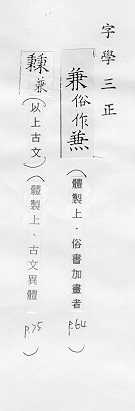 字學三正
兼俗作𠔥(體製上·俗書加畫者 p.64)
兼(以上古文)(體製上·古文異體 p.75)